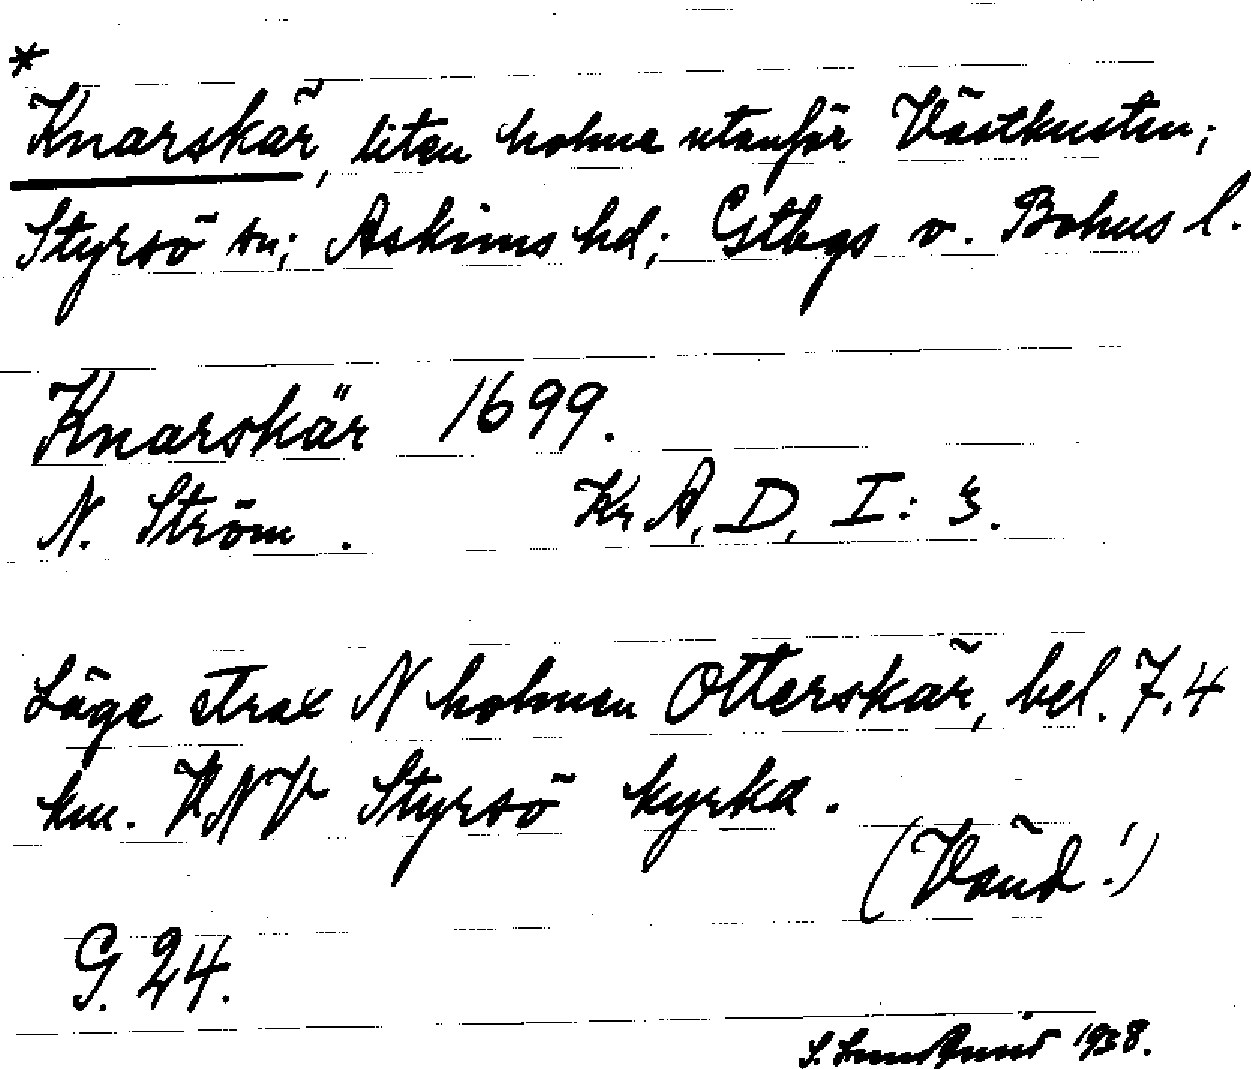 *
Knarskär, liten holme utanför Västkusten;
Styrsö sn; Askims hd; Gtbgs o. Bohus l.
Knarskär 1699.
N. Ström. Kr A, D, I: 3.
Läge strax N holmen Otterskär, bel. 7.4
km. VNV Styrsö kyrka.
(Vänd!)
G. 24.
S. 1938.